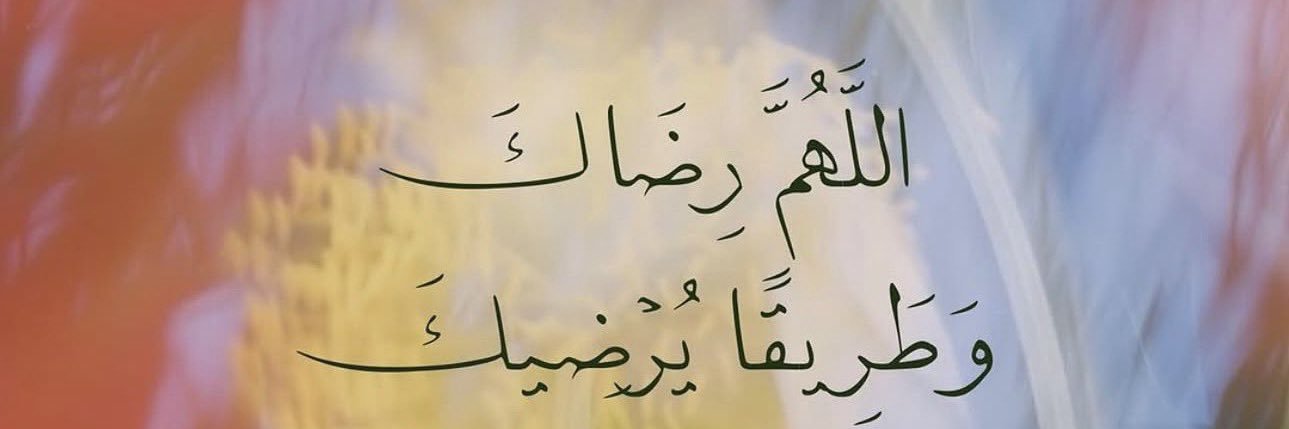 اللَّهُمَّ رِضَاكَ
وَطَرِيقًا يُرْضِيكَ